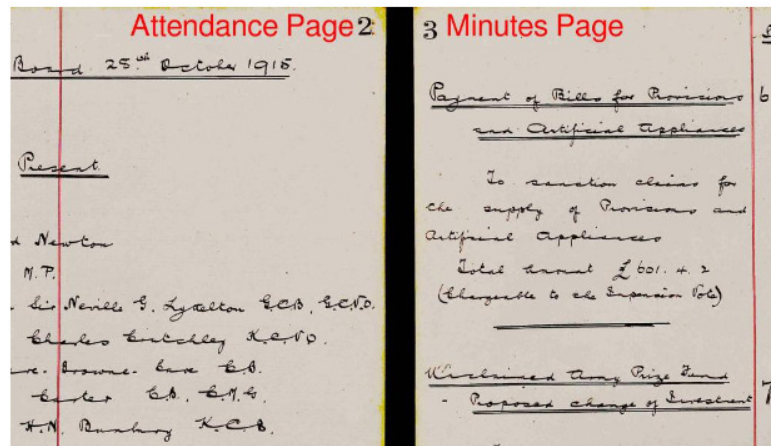 Attendance Page 2
Board 25th October 1915.
Present
Newton
M.P.
Sir Neville G. Lyttelton G.C.B, G.C.V.O.
Charles Critchley K.C.V.O.
Browne-Cave C.B.
Carter C.B., C.M.G.
H.N. Bunbury K.C.B.
3 Minutes Page
Payment of Bills for Provisions 6
and Artificial Appliances
To sanction claims for
the supply of Provisions and
Artificial Appliances
Total Amount £601.4.2
(Chargeable to the Vote)
Unclaimed Army Prize Fund
- Proposed change of Investment 7